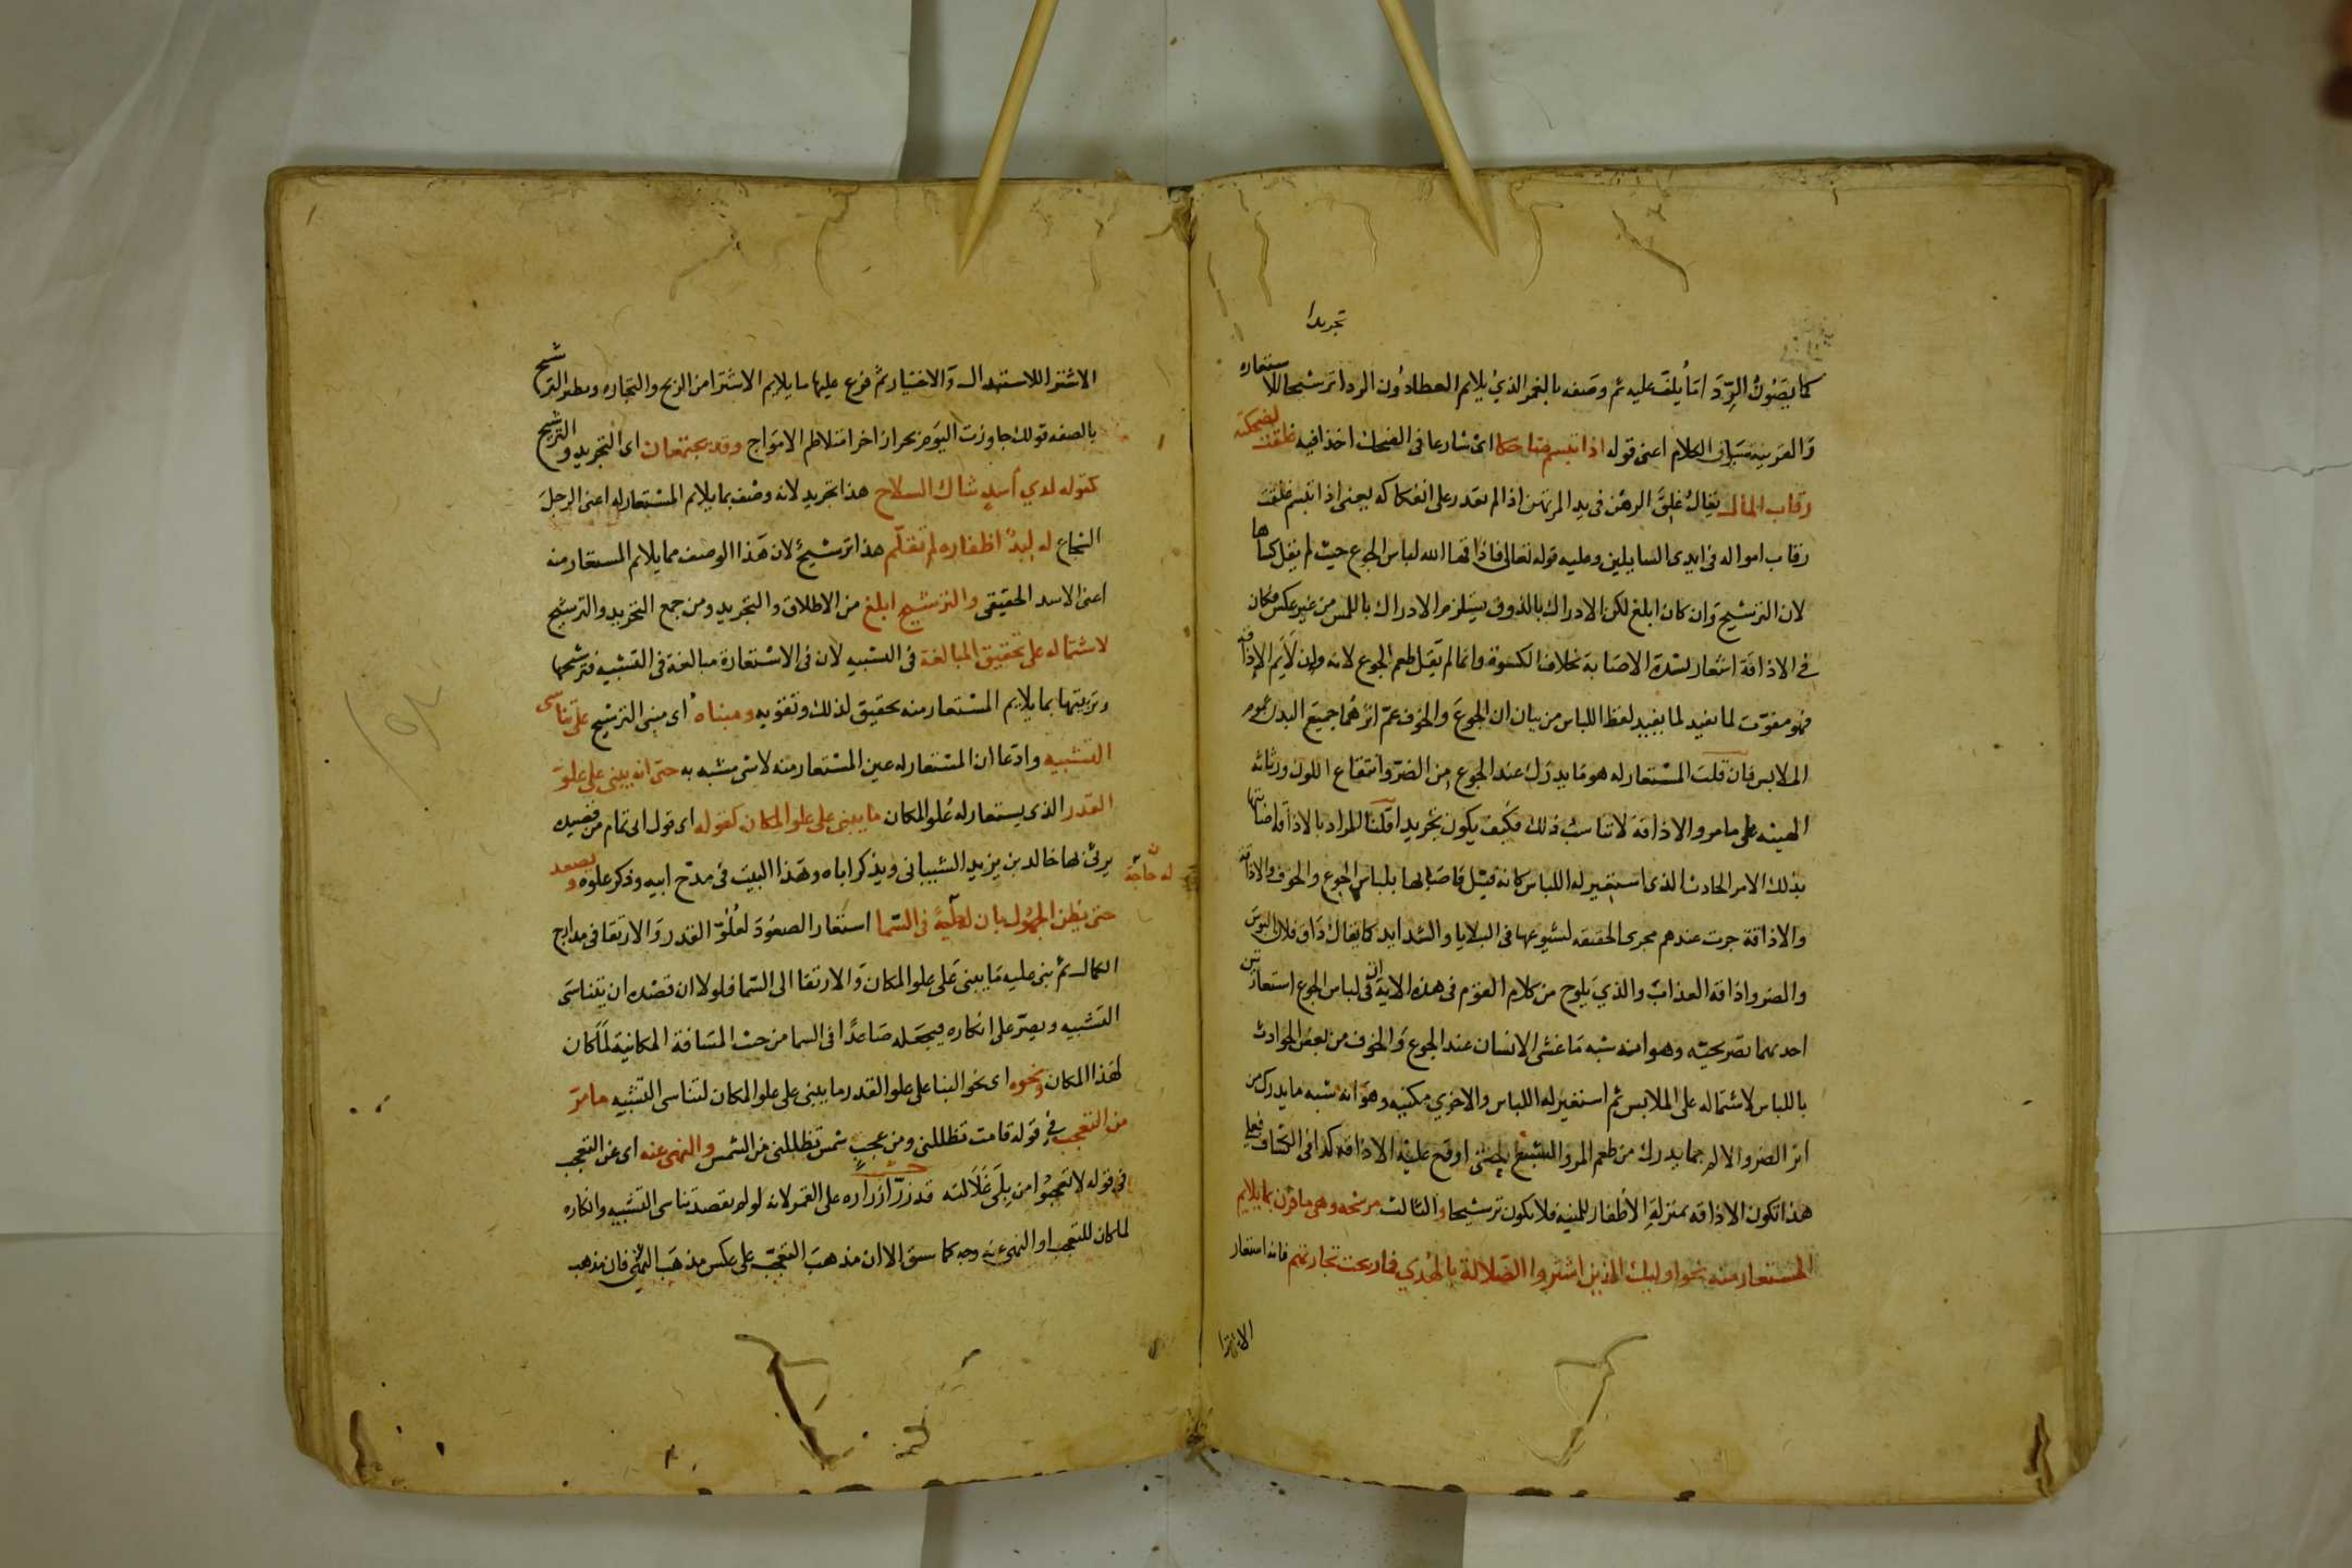 تجريدا
كما يصون الرداء ما يلقى عليه ثم وصفه بالغمر الذي يلايم العطا دون الردا ترشيحا للاستعاره
والقرينة سياق الكلام اعنى قوله اذا تبسم ضاحكا اى شارعا فى الضحك اخذا فيه غلقت لضحكته
رقاب المال يقال غلق الرهن فى يد المرتهن اذا لم يقدر على انفكاكه يعنى اذا تبسم غلقت
رقاب امواله فى ايدى السايلين وعليه قوله تعالى فاذاقها الله لباس الجوع حيث لم يقل كساها
لان الترشيح وان كان ابلغ لكن الادراك بالذوق يستلزم الادراك باللمس من غير عكس فكان
فى الاذاقة اشعار بشدة الاصابة بخلاف الكسوة وانما لم يقل طعم الجوع لانه وان لايم الاذاقة
فهو مفوت لما يفيد لفظ اللباس من بيان ان الجوع والخوف عم اثرهما جميع البدن عموم
الملابس فان قلت المستعار له هو ما يدرك عند الجوع من الضر وانتقاع اللون ورثاثه
الهيئه على ما مر والاذاقة لا تناسب ذلك فكيف يكون تجريدا قلنا المراد بالاذاقة اصابتها
بذلك الامر الحادث الذى استعير له اللباس كانه قيل فاصابها بلباس الجوع والخوف والاذاقة
والاذاقة جرت عندهم مجرى الحقيقه لشيوعها فى البلايا والشدايد كما يقال ذاق فلان البوس
والضر واذاقه العذاب والذي يلوح من كلام القوم فى هذه الاية ان فى لباس الجوع استعارتين
احديهما تصريحيه وهو انه شبه ما غشى الانسان عند الجوع والخوف من بعض الحوادث
باللباس لاشتماله على الملابس ثم استعير له اللباس والاخري مكنيه وهو انه شبه ما يدرك من
اثر الضر والالم بما يدرك من طعم المر والبشع حتى اوقع عليه الاذاقه كذا فى الكشاف فعلى
هذا تكون الاذاقه بمنزلة الاظفار للمنيه فلا يكون ترشيحا والثالث مرشحه وهى ما قرن بما يلايم
المستعار منه نحو اوليك الذين اشتروا الضلالة بالهدي فما ربحت تجارتهم فانه استعار
الاشترا
الاشترا للاستبدال والاختيار ثم فرع عليها ما يلايم الاشترا من الربح والتجاره ونظير الترشيح
بالصفه قولك جاوزت اليوم بحرا زاخرا متلاطم الامواج وقد يجتمعان اى التجريد والترشيح
كقوله لدي أسد شاك السلاح هذا تجريد لانه وصف بما يلايم المستعار له اعنى الرجل
الشجاع له لبد اظفاره لم تقلم هذا ترشيح لان هذا الوصف مما يلايم المستعار منه
اعنى الاسد الحقيقى والترشيح ابلغ من الاطلاق والتجريد ومن جمع التجريد والترشيح
لاشتماله على تحقيق المبالغة فى التشبيه لان فى الاستعارة مبالغة فى التشبيه فترشيحها
وتربيتها بما يلايم المستعار منه تحقيق لذلك وتقويه ومبناه اى مبنى الترشيح على تناسى
التشبيه وادعا ان المستعار له عين المستعار منه لا شى مشبه به حتى انه يبنى على علو
القدر الذى يستعار له علو المكان ما يبنى على علو المكان كقوله اى قول ابى تمام من قصيده
يرثى لها خالد بن يزيد الشيبانى ويذكر اباه وهذا البيت فى مدح ابيه وذكر علوه ويصعد
حتى يظن الجهول بان له حاجة فى السما استعار الصعود لعلو القدر والارتقا فى مدارج
الكمال ثم بنى عليه ما يبنى على علو المكان والارتقا الى السما فلولا ان قصده ان يتناسى
التشبيه ويصر على انكاره فيجعله صاعدا فى السما من حيث المسافة المكانية لما كان
لهذا المكان ونحوه اى نحو البنا على علو القدر ما يبنى على علو المكان لتناسى التشبيه ما مر
من التعجب فى قوله قامت تظللنى ومن عجب شمس تظللنى من الشمس والنهى عنه اى عن التعجب
فى قوله لا تعجبوا من بلى غلالته قد زر ازراره على القمر لانه لو لم يقصد تناسى التشبيه وانكاره
لما كان للتعجب او النهى عنه وجه كما سبق الا ان مذهب التعجب على عكس مذهب النهى فان مذهب